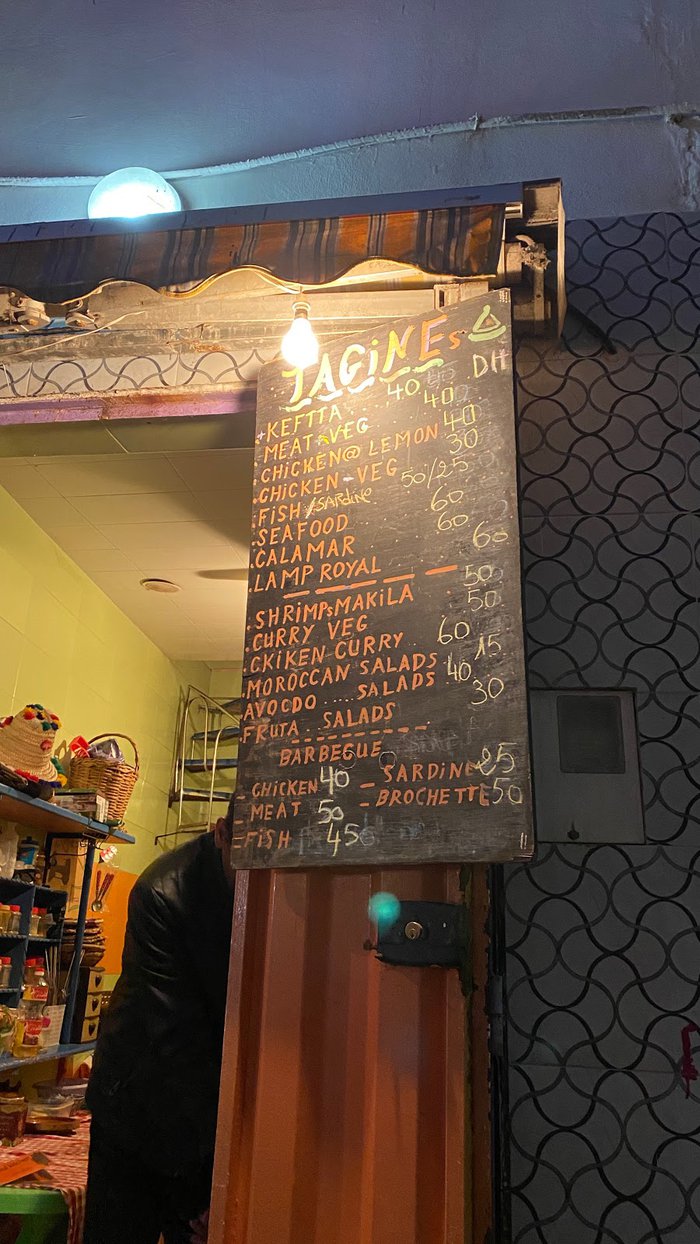 TAGiNEs
DH
KEFTTA .. 40
MEAT-VEG 40
CHiCKEN@ LEMON 40
CHiCKEN-VEG 30
FiSH/SARdiNe 50/25
SEAFOOD 60
CALAMAR 60
LAMP ROYAL 60
SHRiMPsMAKiLA 50
CURRY VEG 50
CKiKEN CURRY 60
MOROCCAN SALADS 15
AVOCDO .... SALAPS 40
FRUTA .. SALADS 30
BARBEGUE
- CHiCKEN 40 - SARDiNE 25
- MEAT 50 - BROCHETTE 50
- FiSH 45